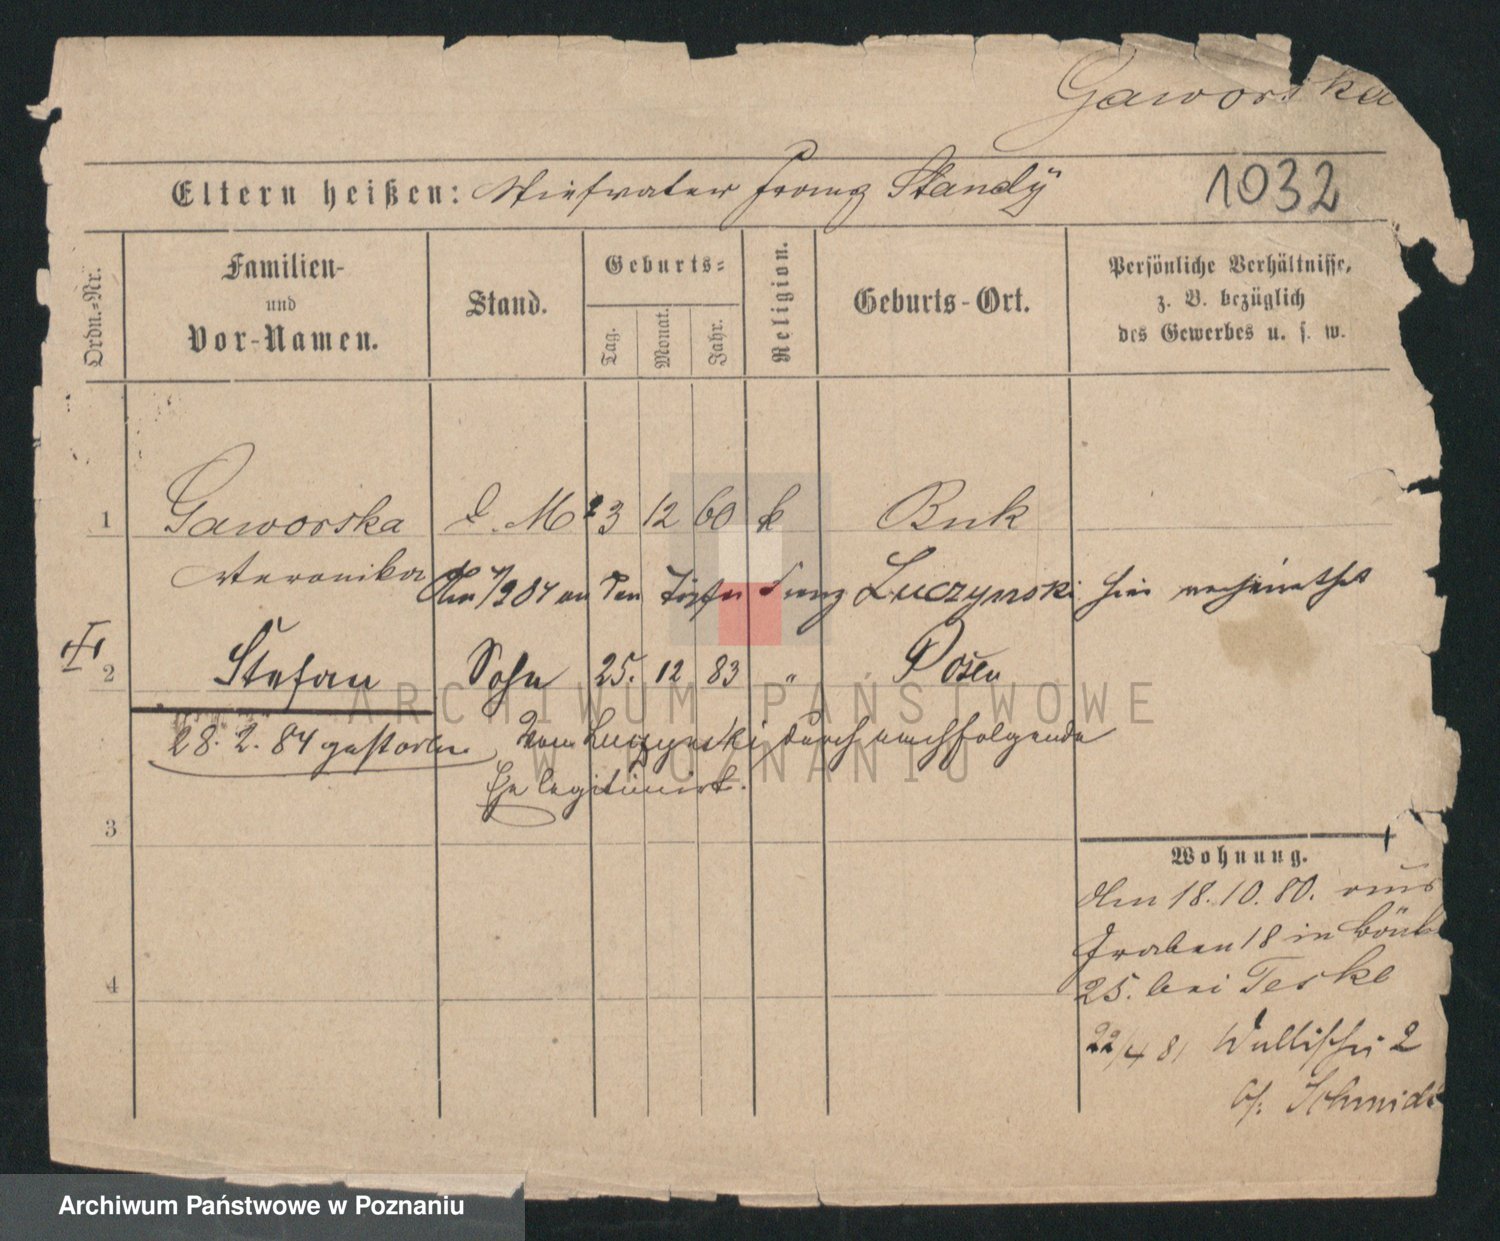 Gaworska
Eltern heißen: Stiefvater Franz Standy
1032
Ordn.-Nr.
Familien-
und
Vor-Namen.
Stand.
Geburts-
Tag.
Monat.
Jahr.
Religion.
Geburts-Ort.
Persönliche Verhältnisse,
z. B. bezüglich
des Gewerbes u. s. w.
1 Gaworska D. M 23 12 60 k Buk
Veronika
an den Töpfer Franz Luczynski hier verheirathet
2 Stefan Sohn 25. 12 83 " Posen
28. 2. 84 gestorben
Vom Luczynski durch nachfolgende
Ehe legitimirt.
3
4
Wohnung.
Den 18. 10. 80. aus
Graben 18 in
25. bei Teske
22/4 81 Wallischei 2
b/. Schmidt
ARCHIWUM PAŃSTWOWE
W POZNANIU
Archiwum Państwowe w Poznaniu